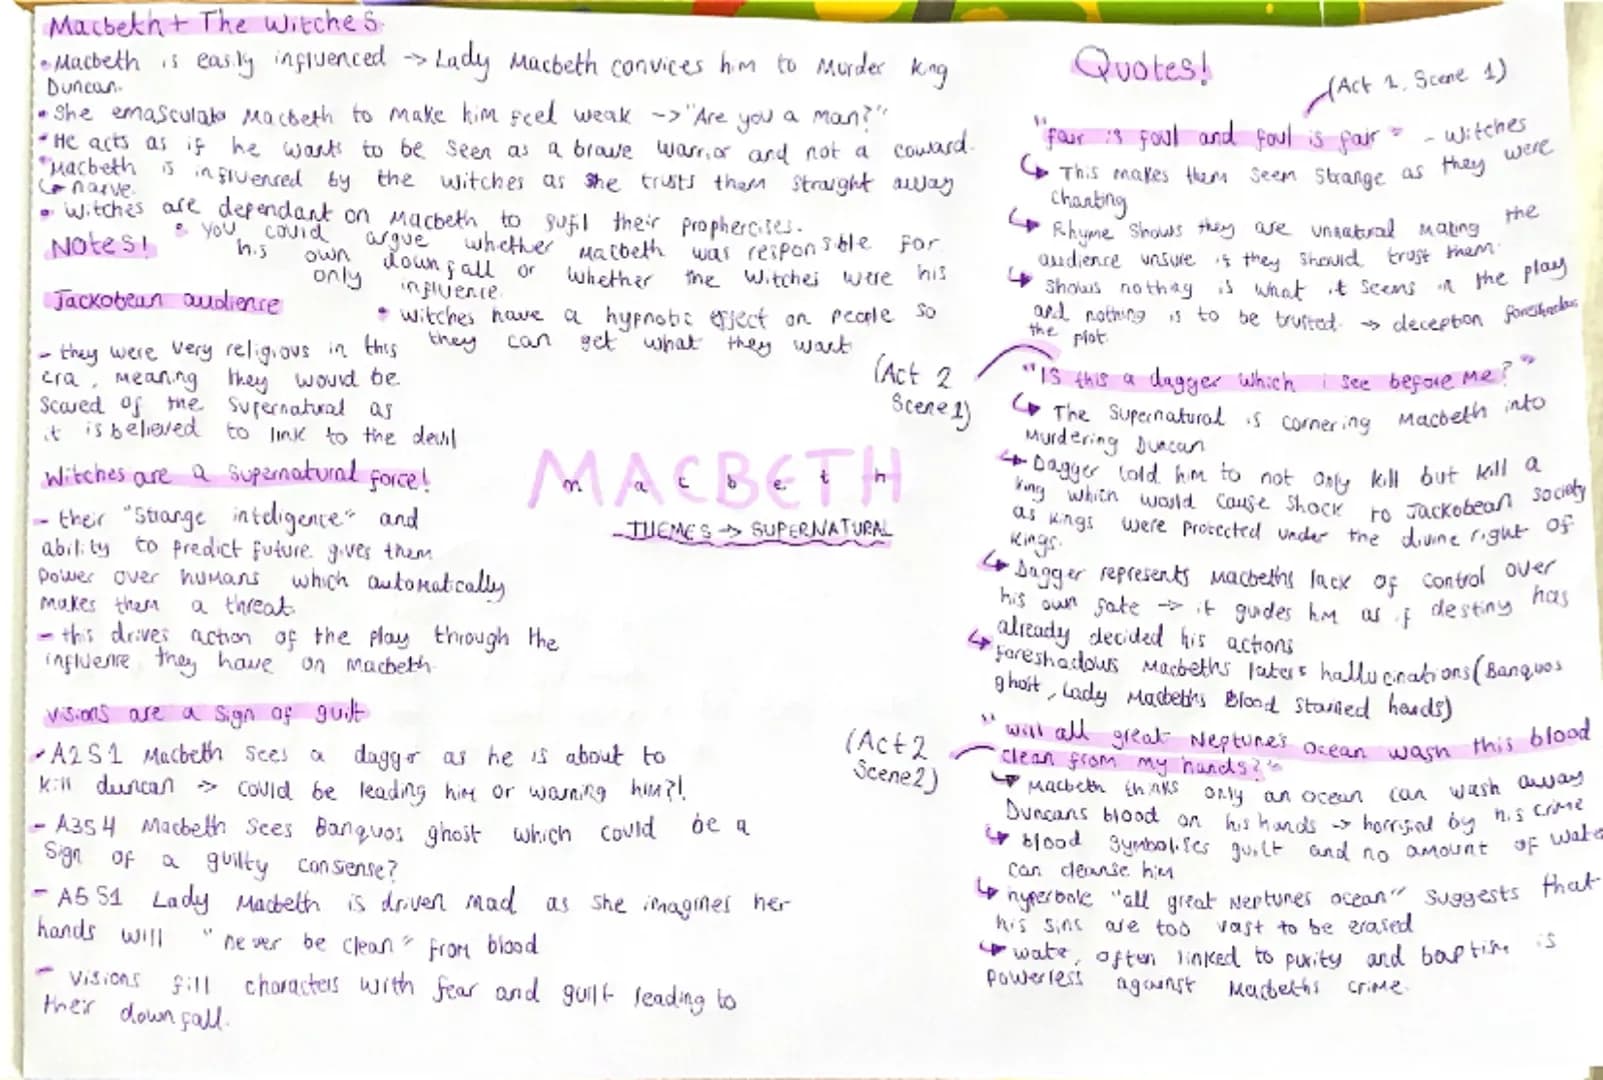 Macbeth + The Witches
• Macbeth is easily influenced -> Lady Macbeth convices him to Murder King
Duncan.
• She emasculats Macbeth to make him feel weak -> "Are you a man?"
• He acts as if he wants to be seen as a brave warrior and not a coward.
• Macbeth is influenced by the witches as she trusts them straight away
↳ naive.
• Witches are dependant on Macbeth to fufil their prophercises.
Notes!
• You could argue whether Macbeth was responsible for
his own downfall or whether the witches were his
only influence.
Jackobean audience
• witches have a hypnotic effect on people so
they can get what they want
- they were very religious in this
era, meaning they would be
scared of the supernatural as
it is believed to link to the devil
Witches are a supernatural force!
- their "strange inteligence" and
ability to predict future gives them
power over humans which automatically
makes them a threat.
- this drives action of the play through the
influence they have on Macbeth.
visions are a sign of guilt
- A2S1 Macbeth sees a dagger as he is about to
kill duncan -> could be leading him or warning him?!
- A3S4 Macbeth sees Banquos ghost which could be a
sign of a guilty consiense?
- A5S1 Lady Macbeth is driven mad as she imagines her
hands will "never be clean" from blood
- visions fill characters with fear and guilt leading to
their downfall.
MACBETH
m a c b e t h
THEMES -> SUPERNATURAL
Quotes!
(Act 1, Scene 1)
"fair is foul and foul is fair" - witches
↳ This makes them seem strange as they were
chanting
↳ Rhyme shows they are unnatural making the
audience unsure if they should trust them.
↳ Shows nothing is what it seems in the play
and nothing is to be trusted. -> deception foreshadows
the plot.
(Act 2
Scene 1)
"Is this a dagger which i see before me?"
↳ The supernatural is cornering Macbeth into
Murdering Duncan
↳ Dagger told him to not only kill but kill a
king which would cause shock to Jackobean society
as kings were protected under the divine right of
kings.
↳ Dagger represents Macbeths lack of control over
his own fate -> it guides him as if destiny has
already decided his actions
↳ foreshadows Macbeths later hallucinations (Banquos
ghost, Lady Macbeths Blood stained hands)
(Act 2
Scene 2)
"will all great Neptune's ocean wash this blood
clean from my hands?"
↳ Macbeth thinks only an ocean can wash away
Duncans blood on his hands -> horrified by his crime
↳ blood symbolises guilt and no amount of water
can cleanse him
↳ hyperbole "all great Neptunes ocean" suggests that
his sins are too vast to be erased
↳ water, often linked to purity and baptism is
powerless against Macbeths crime.